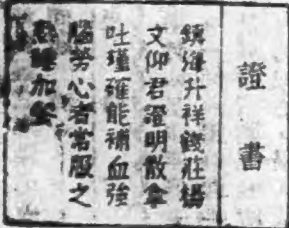 證書
鎮海升祥錢莊楊
文仰君證明散拿
吐瑾確能補血強
腦勞心者常服之
加